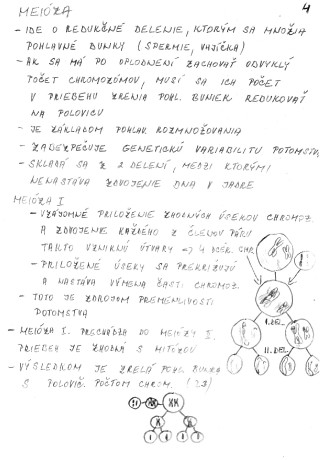 4
MEIÓZA
- IDE O REDUKČNÉ DELENIE, KTORÝM SA MNOŽIA
POHLAVNÉ BUNKY (SPERMIE, VAJÍČKA)
- AK SA MÁ PO OPLODNENÍ ZACHOVAŤ OBVYKLÝ
POČET CHROMOZÓMOV, MUSÍ SA ICH POČET
V PRIEBEHU ZRENIA POHL. BUNIEK REDUKOVAŤ
NA POLOVICU
- JE ZÁKLADOM POHLAV. ROZMNOŽOVANIA
- ZABEZPEČUJE GENETICKÚ VARIABILITU POTOMSTVA
- SKLADÁ SA Z 2 DELENÍ, MEDZI KTORÝMI
NENASTÁVA ZDVOJENIE DNA V JADRE
MEIÓZA I
- VZÁJOMNÉ PRILOŽENIE ZHODNÝCH ÚSEKOV CHROMOZ.
A ZDVOJENIE KAŽDÉHO Z ČLENOV PÁRU
TAKTO VZNIKNÚ ÚTVARY → 4 DCÉR. CHR.
- PRILOŽENÉ ÚSEKY SA PREKRIŽUJÚ
A NASTÁVA VÝMENA ČASTÍ CHROMOZ.
- TOTO JE ZDROJOM PREMENLIVOSTI
POTOMSTVA
I. DEL.
- MEIÓZA I. PRECHÁDZA DO MEIÓZY II.
PRIEBEH JE ZHODNÝ S MITÓZOU
II. DEL.
- VÝSLEDKOM JE ZRELÁ POHL. BUNKA
S POLOVIČ. POČTOM CHROM. (23)